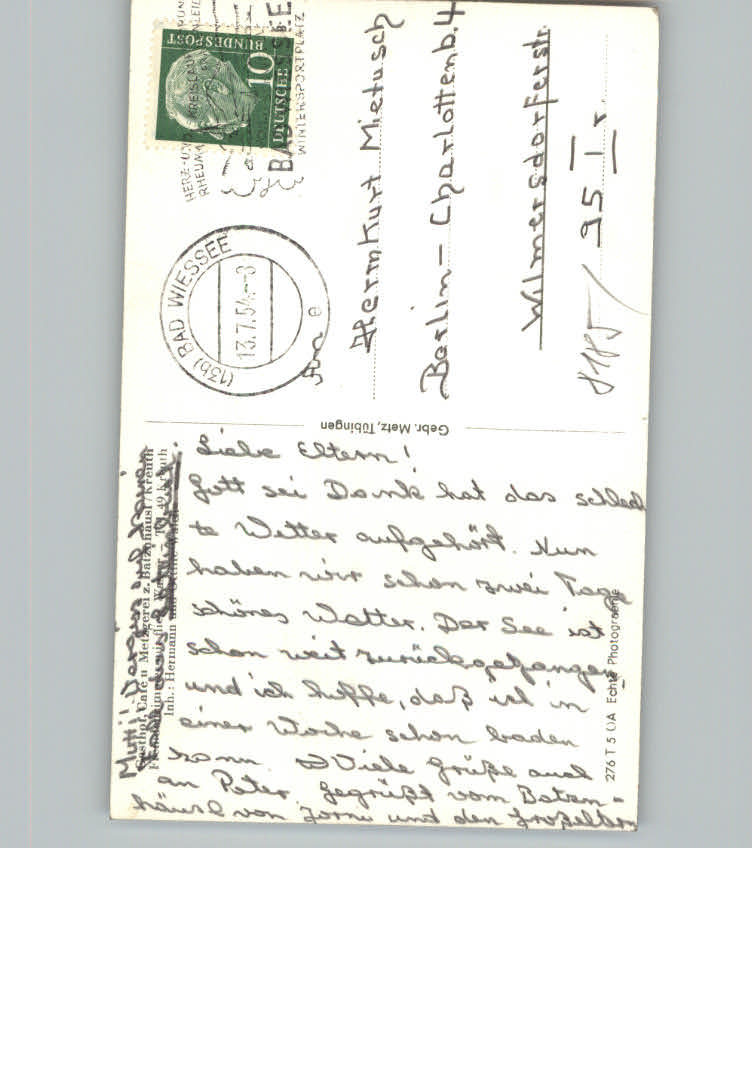 Liebe Eltern!
Gott sei Dank hat das schlech
te Wetter aufgehört. Nun
haben wir schon zwei Tage
schönes Wetter. Der See ist
schon weit zurückgegangen
und ich hoffe, daß ich in
einer Woche schon baden
kann. Viele Grüße auch
an Peter. Gegrüßt vom Batzen-
häusl von und den Großeltern
Mutti! Vergiss auf keinen
Gasthof, Café u Metzgerei z. Batznhäusl / Kreuth
Inh.: Hermann Tel. 49 Kreuth
Gebr. Metz, Tübingen
276 T 5 ÜA Echte Photographie
HERZ- UND
RHEUMA KREISLAUF
BAD WIESSEE
WINTERSPORTPLATZ
DEUTSCHE
BUNDESPOST
10
(13b) BAD WIESSEE
13.7.54.-8
e
An
Herrn Kurt Mietusch
Berlin-Charlottenb. 4
Wilmersdorferstr.
95 I r.